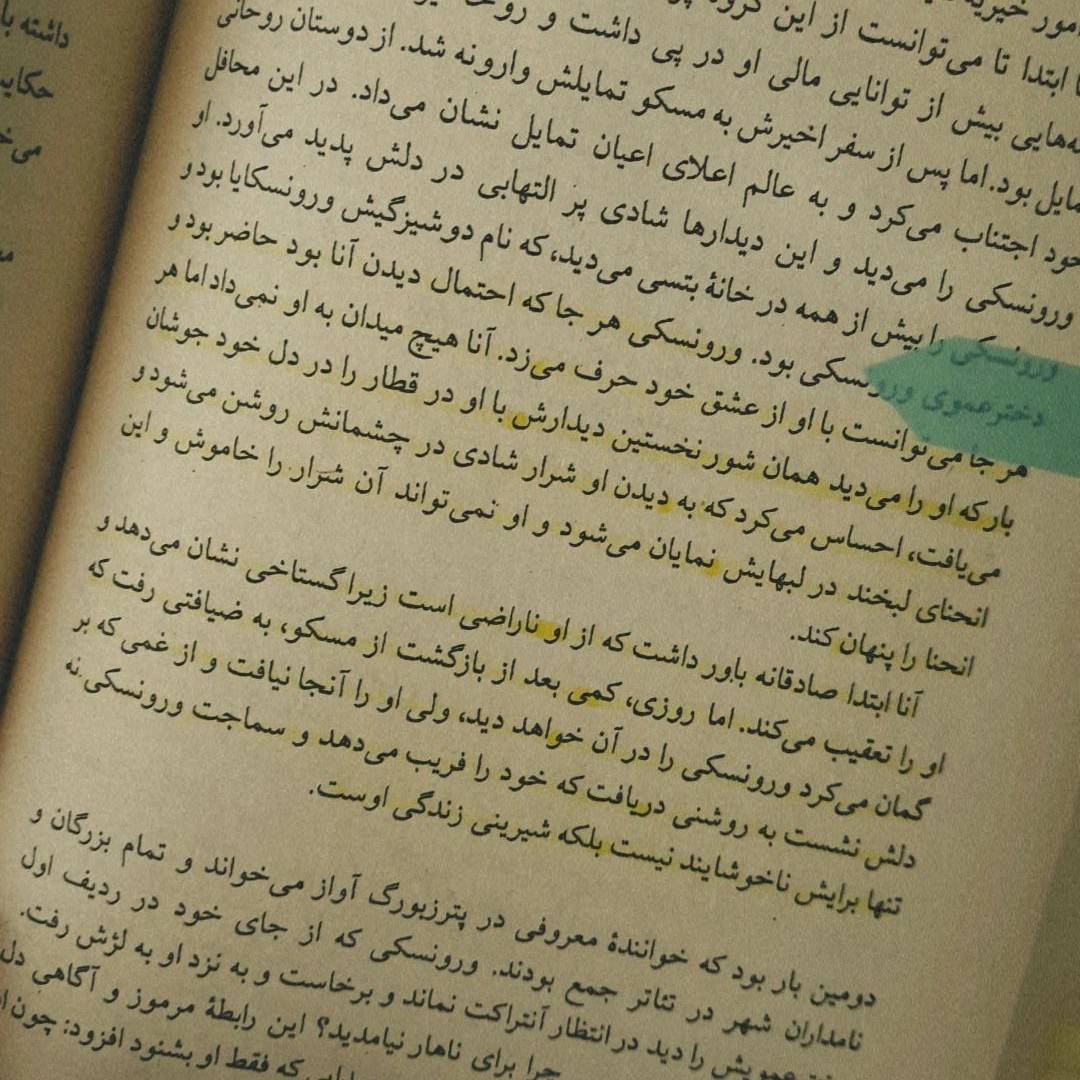 داشته با
حکایت
امور خیریه
ابتدا تا می‌توانست از این گروه
ه‌هایی بیش از توانایی مالی او در پی داشت و
مایل بود. اما پس از سفر اخیرش به مسکو تمایلش وارونه شد. از دوستان روحانی
خود اجتناب می‌کرد و به عالم اعلای اعیان تمایل نشان می‌داد. در این محافل
ورونسکی را می‌دید و این دیدارها شادی پر التهابی در دلش پدید می‌آورد. او
ورونسکی را بیش از همه در خانهٔ بتسی می‌دید، که نام دوشیزگیش ورونسکایا بود و
دخترعموی ورونسکی بود. ورونسکی هر جا که احتمال دیدن آنا بود حاضر بود و
هر جا می‌توانست با او از عشق خود حرف می‌زد. آنا هیچ میدان به او نمی‌داد اما هر
بار که او را می‌دید همان شور نخستین دیدارش با او در قطار را در دل خود جوشان
می‌یافت، احساس می‌کرد که به دیدن او شرار شادی در چشمانش روشن می‌شود و
انحنای لبخند در لبهایش نمایان می‌شود و او نمی‌تواند آن شرار را خاموش و این
انحنا را پنهان کند.
آنا ابتدا صادقانه باور داشت که از او ناراضی است زیرا گستاخی نشان می‌دهد و
او را تعقیب می‌کند. اما روزی، کمی بعد از بازگشت از مسکو، به ضیافتی رفت که
گمان می‌کرد ورونسکی را در آن خواهد دید، ولی او را آنجا نیافت و از غمی که بر
دلش نشست به روشنی دریافت که خود را فریب می‌دهد و سماجت ورونسکی نه
تنها برایش ناخوشایند نیست بلکه شیرینی زندگی اوست.
دومین بار بود که خوانندهٔ معروفی در پترزبورگ آواز می‌خواند و تمام بزرگان و
نامداران شهر در تئاتر جمع بودند. ورونسکی که از جای خود در ردیف اول
دخترعمویش را دید در انتظار آنتراکت نماند و برخاست و به نزد او به لژش رفت.
چرا برای ناهار نیامدید؟ این رابطهٔ مرموز و آگاهی دل
که فقط او بشنود افزود: چون